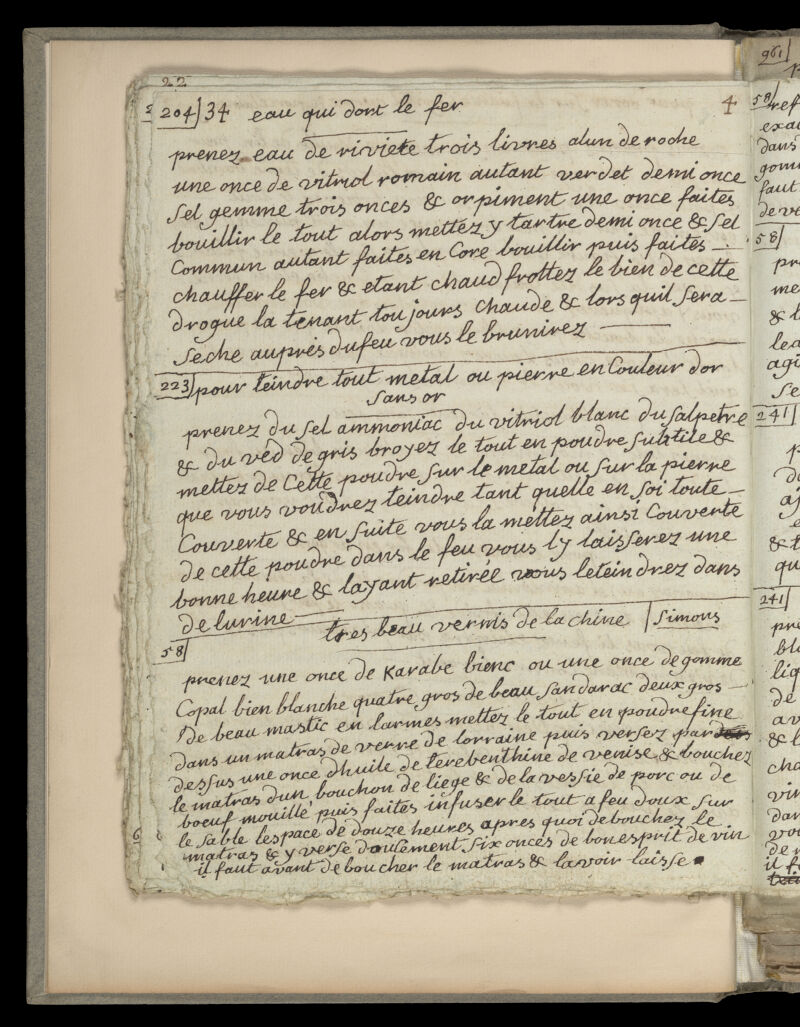 22
204 34 eau qui dort le fer 4
prenez eau de riviete trois livres alun de roche
une once de vitriol romain autant verdet demi once
sel gemme trois onces & orpiment une once faites
bouillir le tout alors mettez y tartre demi once & sel
Commun autant faites en Core bouillir puis faites
chauffer le fer & etant chaud frottez le bien de cette
drogue la tenant toujours chaude & lors quil sera
seche auprès du feu vous le brunirez
223 pour teindre tout metal ou pierre en Couleur dor
sans or
prenez du sel ammoniac du vitriol blanc du salpetre
& du verd de gris broyez le tout en poudre subtile &
mettez de Cette poudre sur le metal ou sur la pierre
que vous voudrez teindre tant quelle en soi toute
Couverte & en suite vous la mettez ainsi Couverte
de cette poudre dans le feu vous ly laisserez une
bonne heure & layant retirée vous leteindrez dans
de lurine
tres beau vernis de la chine simons
58
prenez une once de Karabe bienc ou une once de gomme
Copal bien blanche quatre gros de beau sandarac deux gros
de beau mastic en larmes mettez le tout en poudre fine
dans un matras de verre de lorraine puis versez par
dessus une once dhuile de terebenthine de venise & bouchez
le matras dun bouchon de liege & de la vessie de porc ou de
boeuf mouillé puis faites infuser le tout a feu doux sur
le sable lespace de douze heures apres quoi debouchez le
matras & y verse doulement six onces de bon esprit de vin
il faut avant de boucher le matras & lavoir laisse
961
58
58
241
241